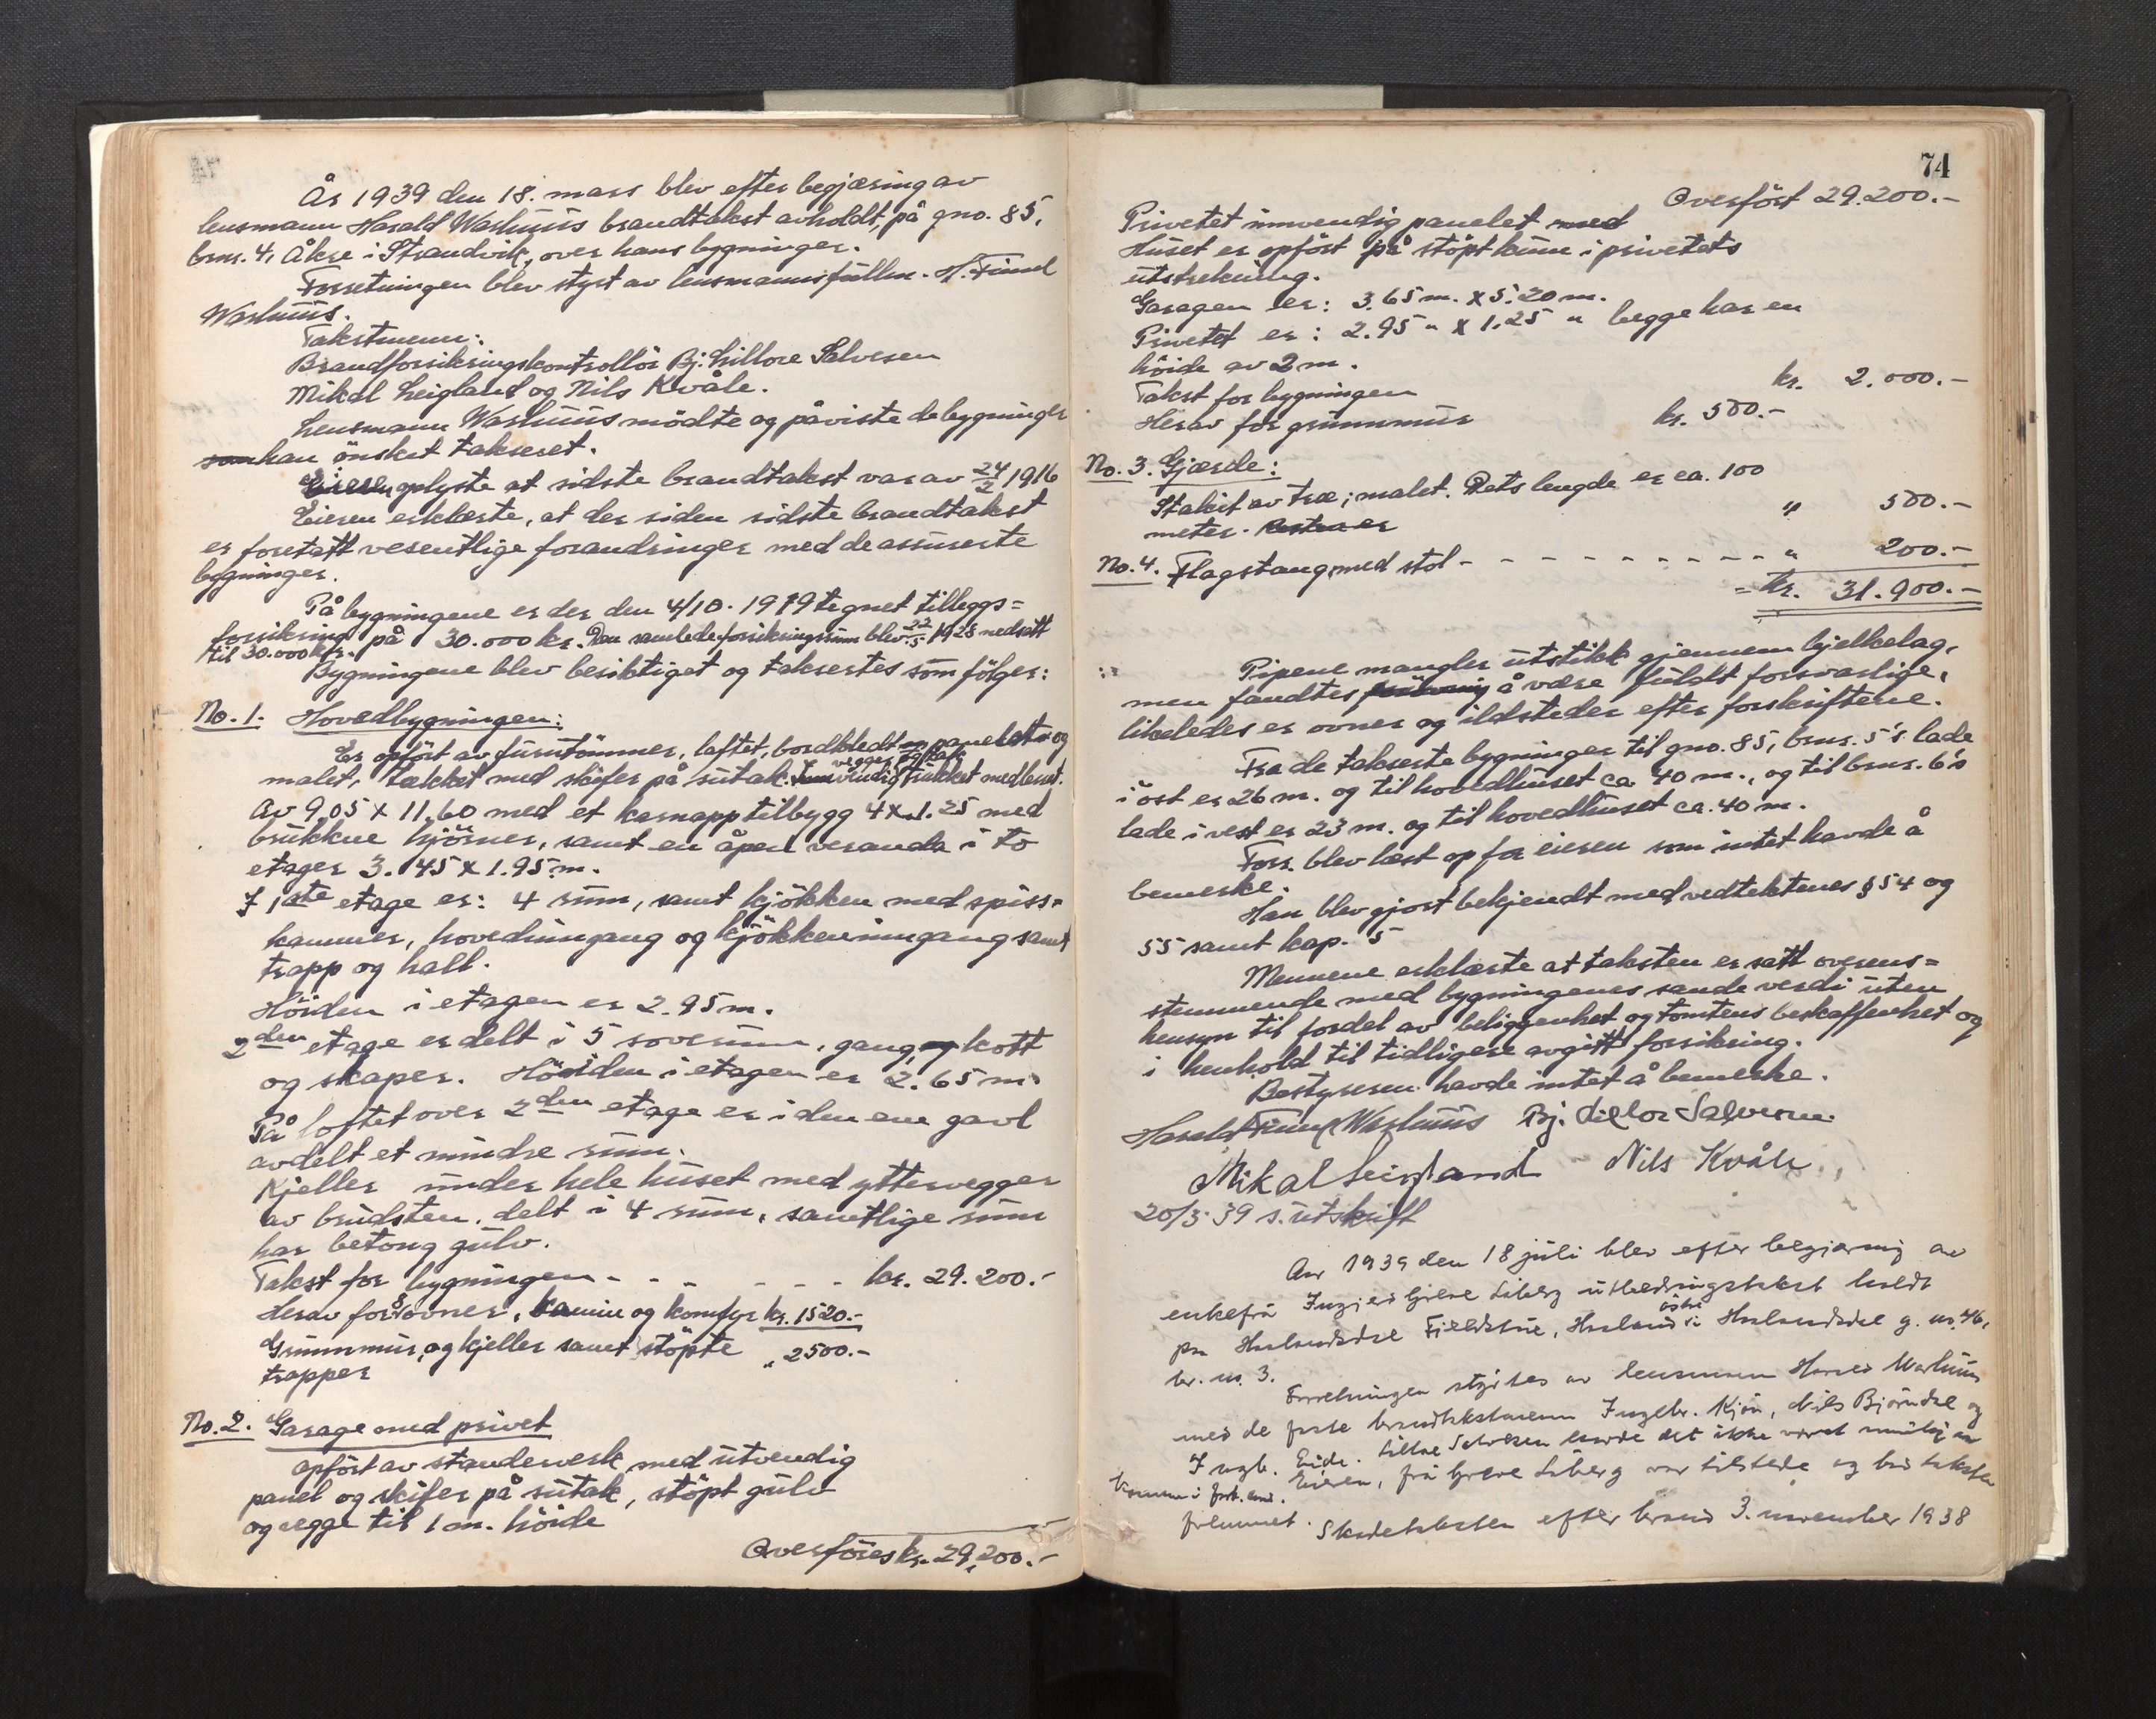 År 1939 den 18. mars blev efter begjæring av
lensmann Harald Warhuus brandtakst avholdt, på gno. 85,
brnr. 4, Åkre i Strandvik, over hans bygninger.
Forretningen blev styrt av lensmannsfullm. H. Fund
Warhuus.
Takstmenn:
Brandforsikringskontrollør Bj. Lillore Salvesen
Mikal Leigland og Nils Kvåle.
Lensmann Warhuus mödte og påviste de bygninger
som han önsket takseret.
Eieren oplyste at sidste brandtakst var av 24/2 1916
Eieren erklærte, at der siden sidste brandtakst
er foretatt vesentlige forandringer med de assurerte
bygninger.
På bygningene er der den 4/10. 1919 tegnet tilleggs=
forsikring på 30.000 kr. Den samlede forsikringssum blev 22/5 1928 nedsatt
til 30.000 kr.
Bygningene blev besiktiget og taksertes som fölger:
No. 1. Hovedbygningen:
Er opfört av furutömmer, loftet, bordkledt panelet og
malet, tækket med skifer på sutak. vegger og tak trukket med
Av 9,05 x 11,60 med et karnapptilbygg 4 x 1.25 med
brukkne hjörner, samt en åpen veranda i to
etager 3.45 x 1.95 m.
I 1ste etage er: 4 rum, samt kjökken med spiss=
kammer, hovedinngang og kjökkeninngang samt
trapp og hall.
Höiden i etagen er 2.95 m.
2den etage er delt i 5 soverum, gang og kott
og skaper. Höiden i etagen er 2.65 m.
På loftet over 2den etage er i den ene gavl
avdelt et mindre rum.
Kjeller under hele huset med yttervegger
av brudsten, delt i 4 rum, samtlige rum
har betong gulv.
Takst for bygningen - - - - - - kr. 29.200.-
Herav for 8 ovner, kamin og komfyr kr. 1520.-
Grunnmur, og kjeller samt stöpte „ 2500.-
trapper
No. 2. Garage med privet
opfört av standerverk med utvendig
panel og skifer på sutak, stöpt gulv
og vegge til 1 m. höide
Overföres kr. 29,200.-
74
Overfört 29.200.-
Privetet innvendig panelet med
Huset er opfört på stöpt kum i privetets
utstrekning.
Garagen er: 3.65 m. x 5.20 m.
Privetet er: 2.95 „ x 1.25 „ begge har en
höide av 2 m.
Takst for bygningen kr. 2.000.-
Herav for grunnmur kr. 500.-
No. 3. Gjærde:
Stakit av træ; malet. Dets lengde er ca. 100
meter. Resten er „ 500.-
No. 4. Flagstang med stol - - - - - - - - - „ 200.-
= kr. 31.900.-
Pipene mangler utstikk gjennem bjelkelag,
men fandtes å være fuldt forsvarlige,
likeledes er ovner og ildsteder efter forskriftene.
Fra de takserte bygninger til gno. 85, brnr. 5's lade
i öst er 26 m. og til hovedhuset ca 40 m., og til brnr. 6's
lade i vest er 23 m. og til hovedhuset ca. 40 m.
Forr. blev læst op for eieren som intet havde å
bemerke.
Han blev gjort bekjendt med vedtektenes § 54 og
55 samt kap. 5
Mennene erklærte at taksten er satt overens=
stemmende med bygningenes sande verdi uten
hensyn til fordel av beliggenhet og tomtens beskaffenhet og
i henhold til tidligere avgitt forsikring.
Bestyreren havde intet å bemerke.
Harald Fund Warhuus Bj. Lillor Salvesen
Mikal Leigland Nils Kvåle
20/3-39 s. utskrift
Aar 1939 den 18 juli blev efter begjæring av
enkefru Greve Liberg utbedringstakst holdt
paa Hålandsdal Fjeldstue, Håland östre i Hålandsdal g. nr. 46,
br. nr. 3.
Forretningen styrtes av lensmann Harald Warhuus
med de faste brandtakstmenn Ingebr. Kjön, Nils Björndal og
Ingb. Eide. Lillore Salvesen havde det ikke været mulig at
Eieren, fru Greve Liberg var tilstede og bad taksten
fremmet. Skadetaksten efter brand 3. november 1938